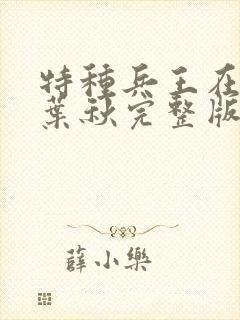 特種兵王在
葉秋完整版
薛小樂